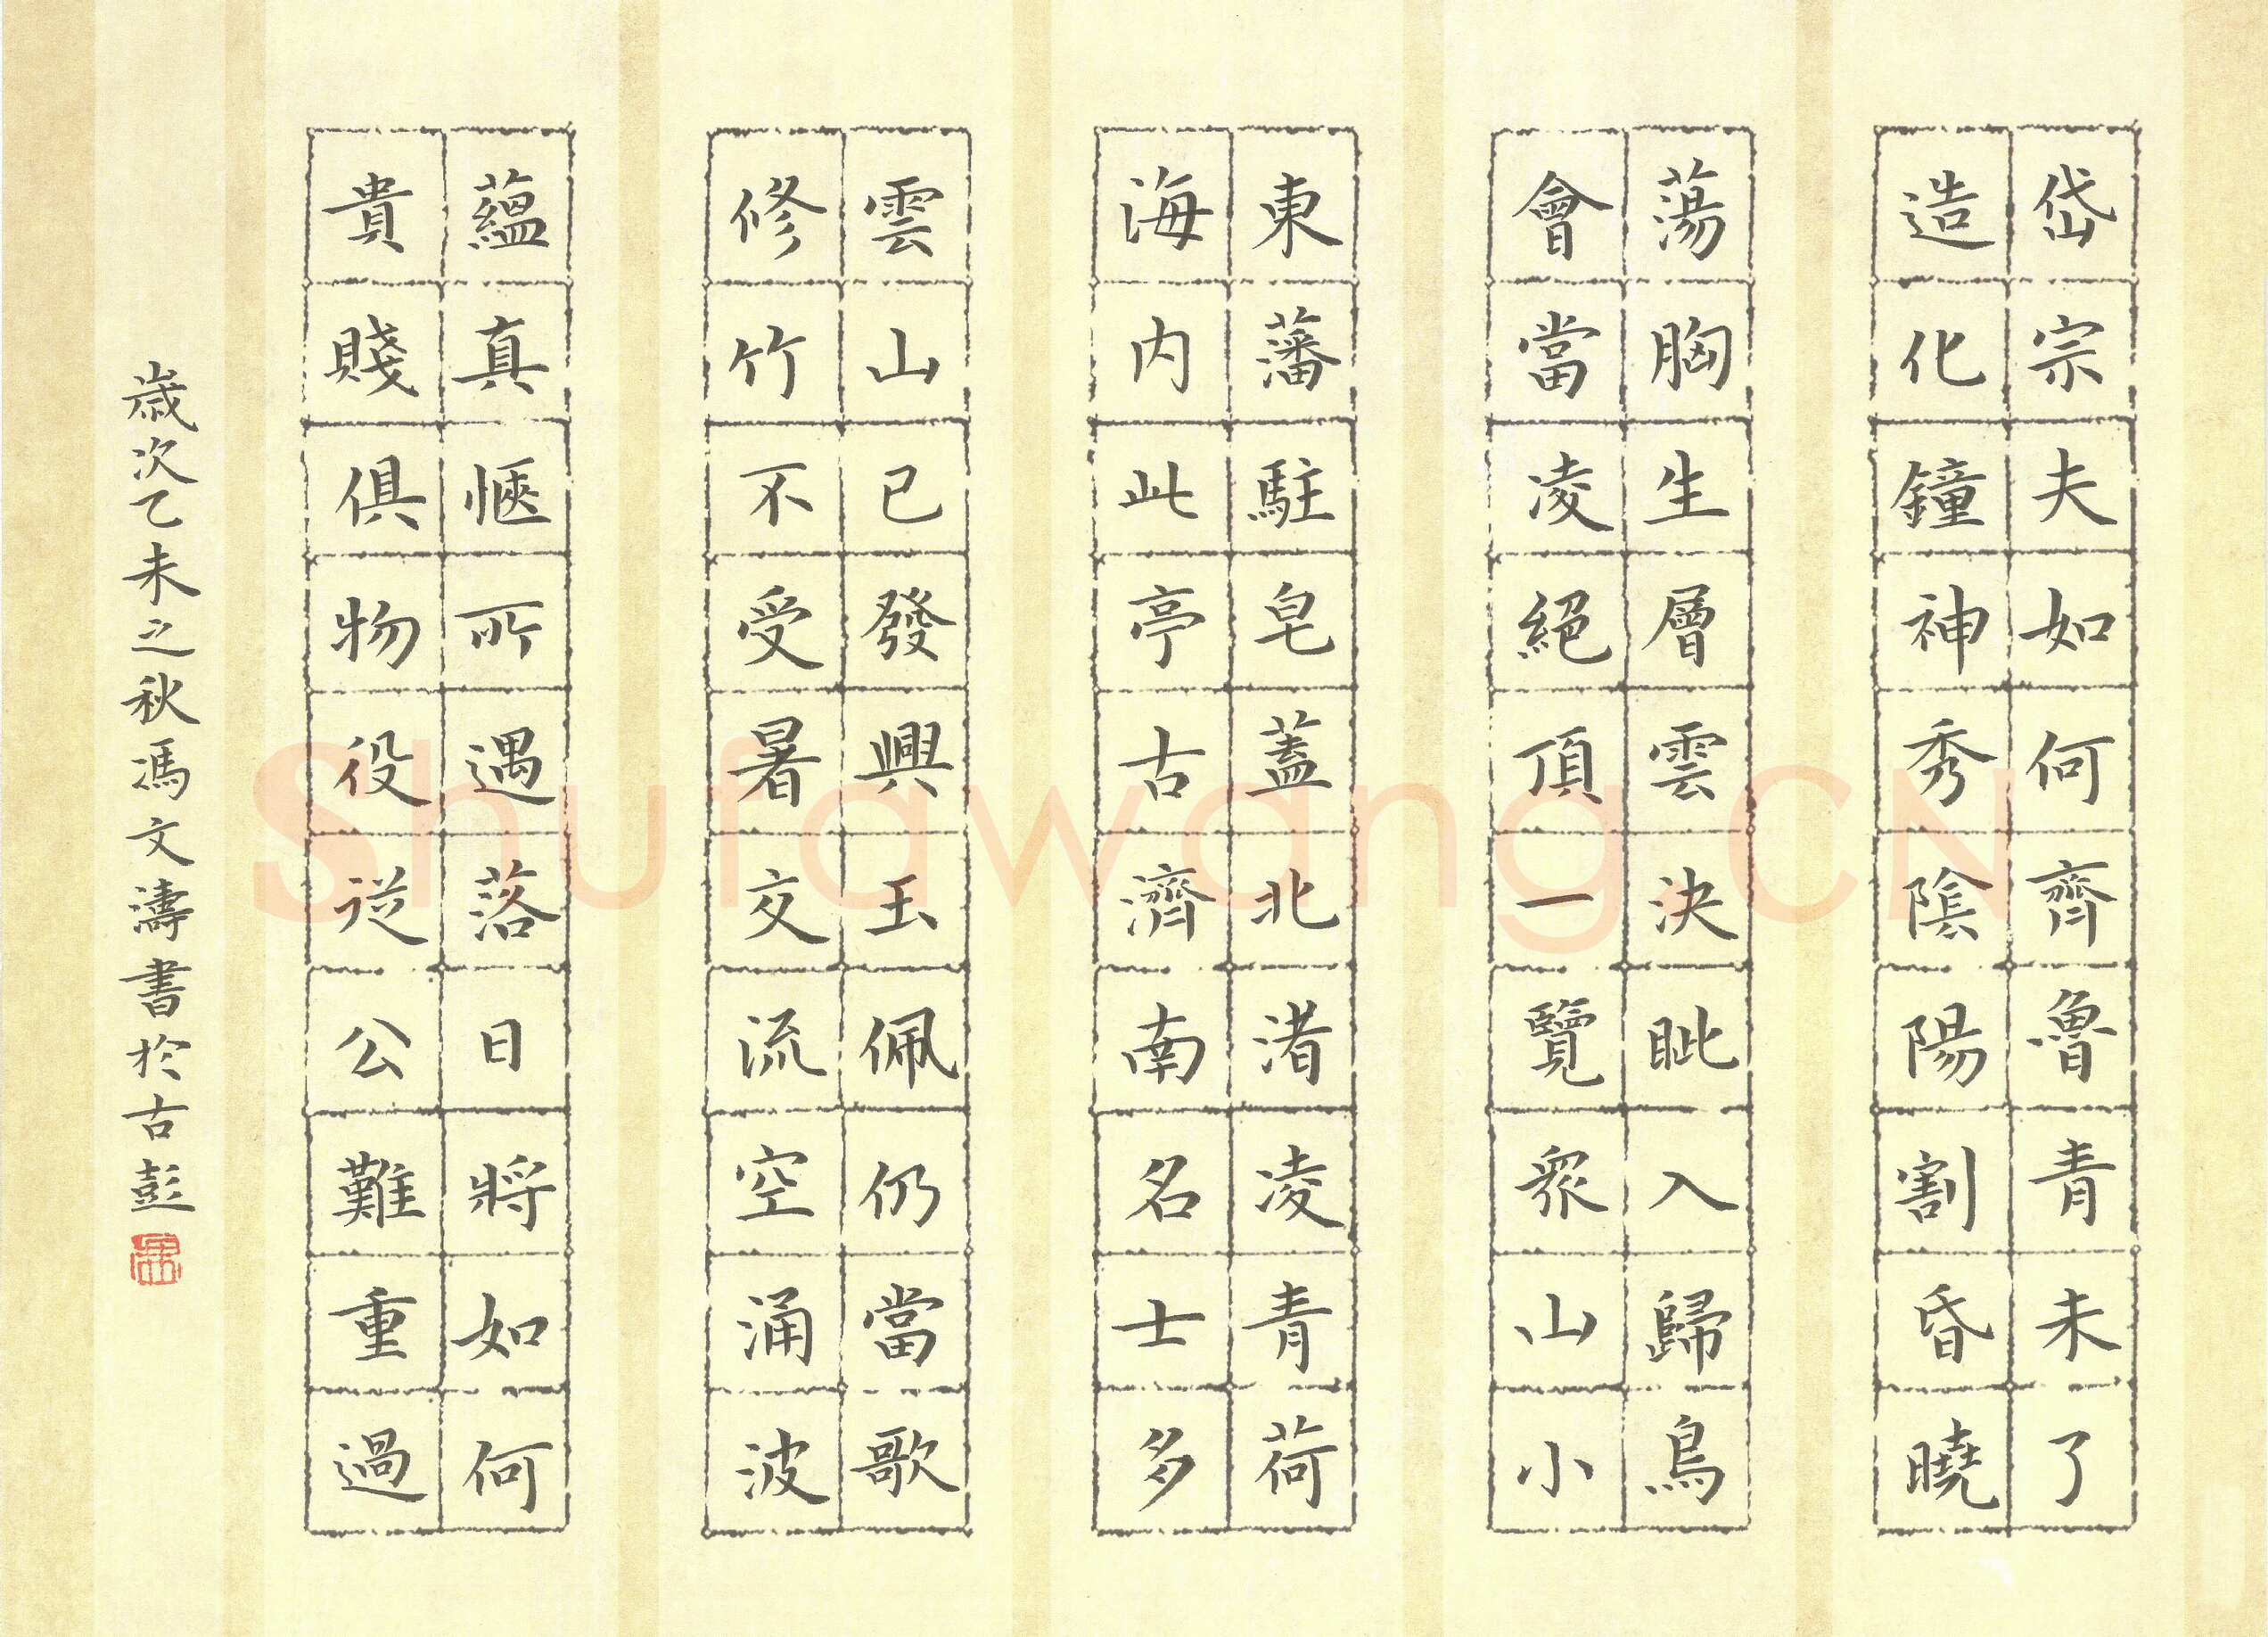 岱宗夫如何齊魯青未了
造化鐘神秀陰陽割昏曉
蕩胸生層雲決眥入歸鳥
會當凌絕頂一覽眾山小
東藩駐皂蓋北渚凌青荷
海內此亭古濟南名士多
雲山已發興玉佩仍當歌
修竹不受暑交流空涌波
蘊真愜所遇落日將如何
貴賤俱物役從公難重過
歲次乙未之秋馮文濤書於古彭
Shufawang.CN